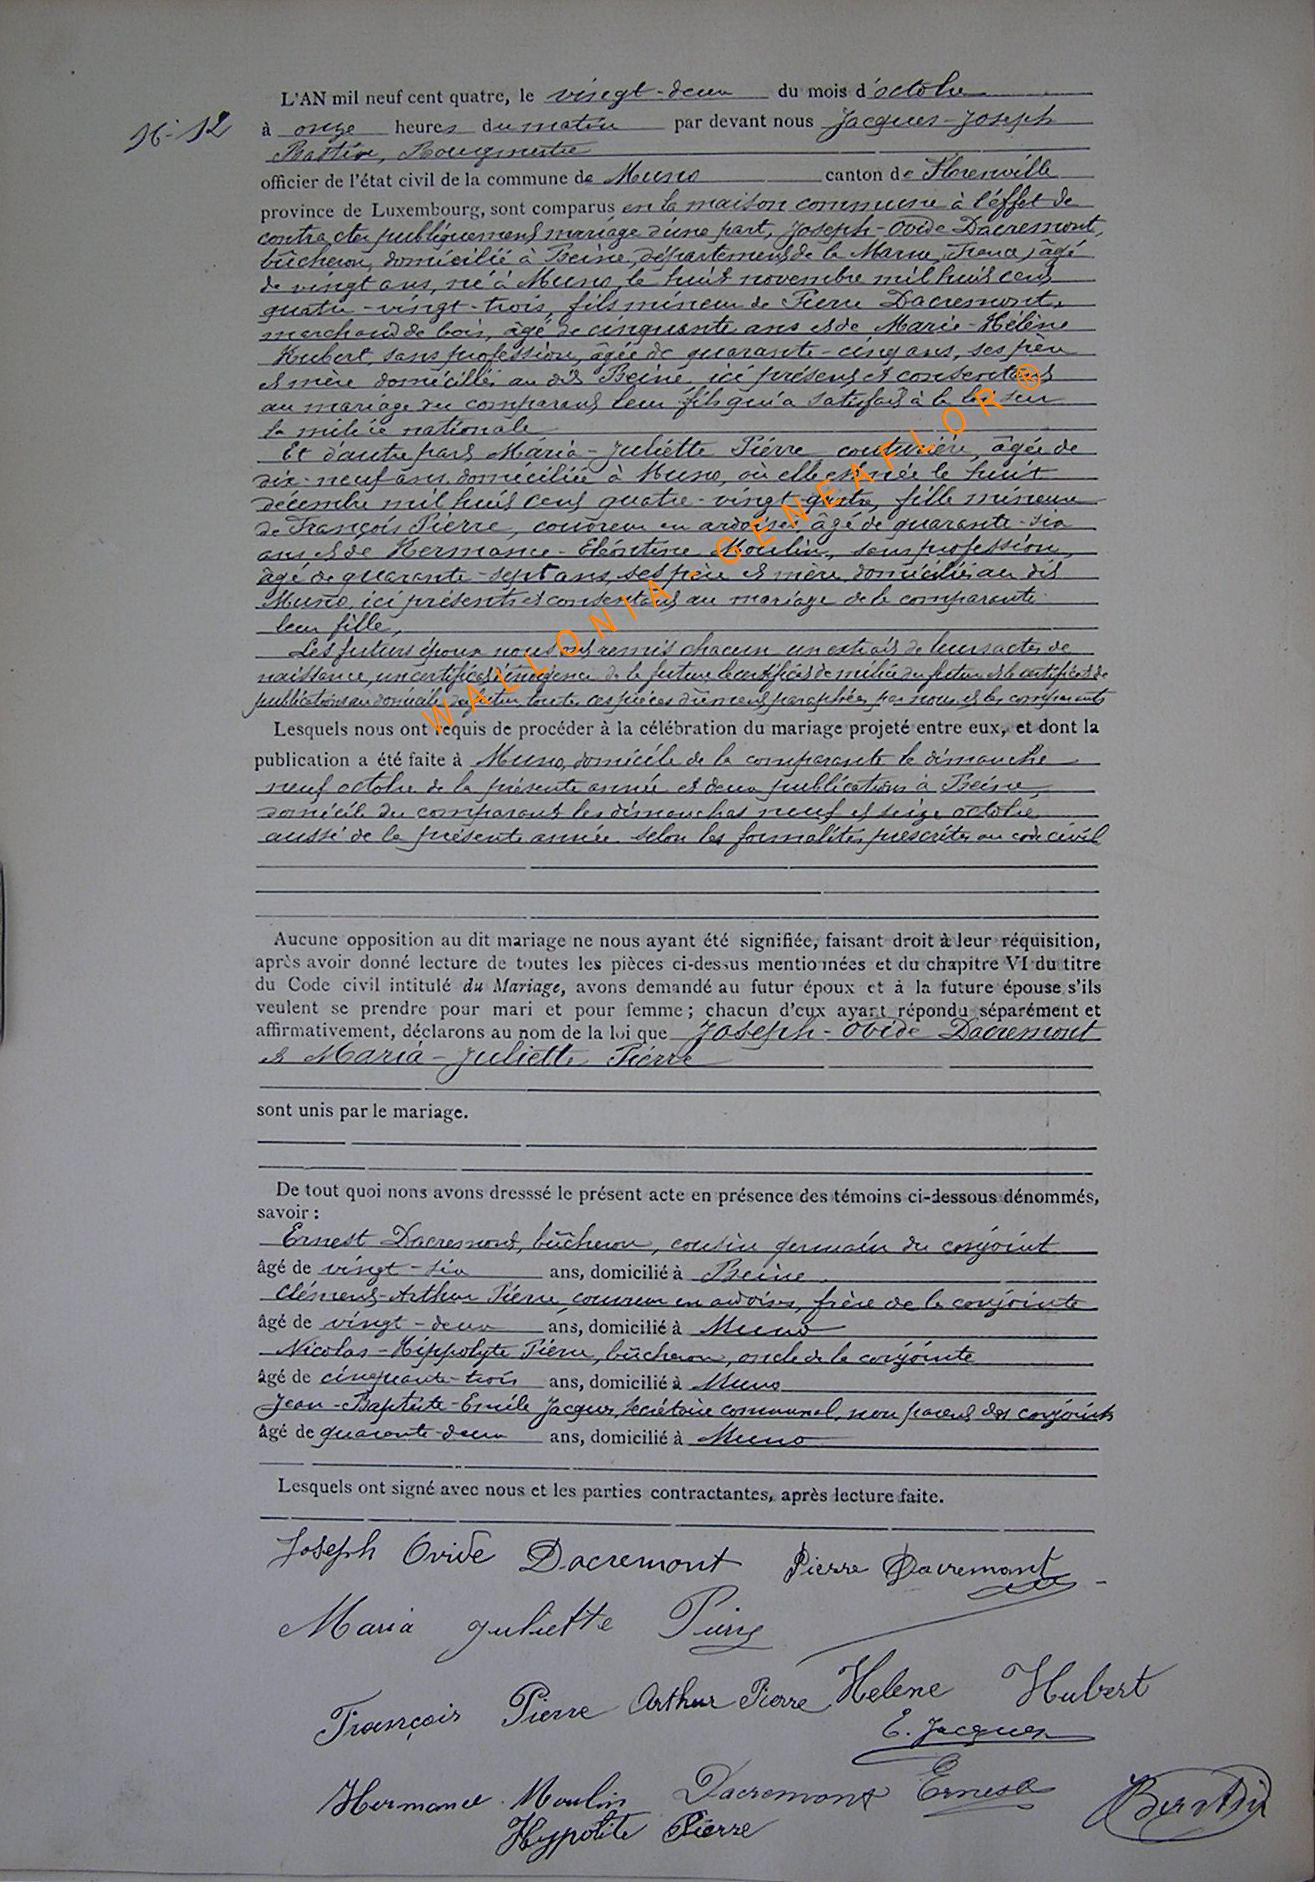 N° 12
L'AN mil neuf cent quatre, le vingt-deux du mois d'octobre
à onze heures du matin par devant nous Jacques-Joseph
Bastin, Bourgmestre
officier de l'état civil de la commune de Muno canton de Florenville
province de Luxembourg, sont comparus en la maison commune à l'effet de
contracter publiquement mariage d'une part, Joseph-Ovide Dacremont,
bûcheron, domicilié à Beine, département de la Marne, France, âgé
de vingt ans, né à Muno, le huit novembre mil huit cent
quatre-vingt-trois, fils mineur de Pierre Dacremont,
marchand de bois, âgé de cinquante ans et de Marie-Hélène
Hubert, sans profession, âgée de quarante-cinq ans, ses père
et mère domiciliés au dit Beine, ici présents et consentants
au mariage du comparant leur fils qui a satisfait à la loi sur
la milice nationale
Et d'autre part Maria-Juliette Pierre couturière, âgée de
dix-neuf ans, domiciliée à Muno, où elle est née le huit
décembre mil huit cent quatre-vingt-quatre, fille mineure
de François Pierre, couvreur en ardoises, âgé de quarante-six
ans et de Hermance-Eléontine Moulin, sans profession,
âgé de quarante-sept ans, ses père et mère domiciliés au dit
Muno, ici présents et consentants au mariage de la comparante
leur fille,
Les futurs époux nous ont remis chacun un extrait de leurs actes de
naissance, un certificat d'indigence de la future le certificat de milice du futur et le certificat de
publications au domicile du futur toutes ces pièces dûment paraphées par nous et les comparants
Lesquels nous ont requis de procéder à la célébration du mariage projeté entre eux, et dont la
publication a été faite à Muno, domicile de la comparante le dimanche
neuf octobre de la présente année et deux publications à Beine,
domicile du comparant les dimanches neuf et seize octobre
aussi de la présente année selon les formalités prescrites au code civil
Aucune opposition au dit mariage ne nous ayant été signifiée, faisant droit à leur réquisition,
après avoir donné lecture de toutes les pièces ci-dessus mentionnées et du chapitre VI du titre
du Code civil intitulé du Mariage, avons demandé au futur époux et à la future épouse s'ils
veulent se prendre pour mari et pour femme ; chacun d'eux ayant répondu séparément et
affirmativement, déclarons au nom de la loi que Joseph-Ovide Dacremont
et Maria-Juliette Pierre
sont unis par le mariage.
De tout quoi nons avons dresssé le présent acte en présence des témoins ci-dessous dénommés,
savoir :
Ernest Dacremont, bûcheron, cousin germain du conjoint
âgé de vingt-six ans, domicilié à Beine
Clément-Arthur Pierre, couvreur en ardoises, frère de la conjointe
âgé de vingt-deux ans, domicilié à Muno
Nicolas-Hippolyte Pierre, bûcheron, oncle de la conjointe
âgé de cinquante-trois ans, domicilié à Muno
Jean-Baptiste-Emile Jacques, secrétaire communal, non parent des conjoints
âgé de quarante-deux ans, domicilié à Muno
Lesquels ont signé avec nous et les parties contractantes, après lecture faite.
Joseph Ovide Dacremont Pierre Dacremont
Maria Juliette Pierre
François Pierre Arthur Pierre Helene Hubert
E. Jacques
Hermance Moulin Dacremont Ernest
Hyppolite Pierre
WALLONIA - GENEAFLOR ®